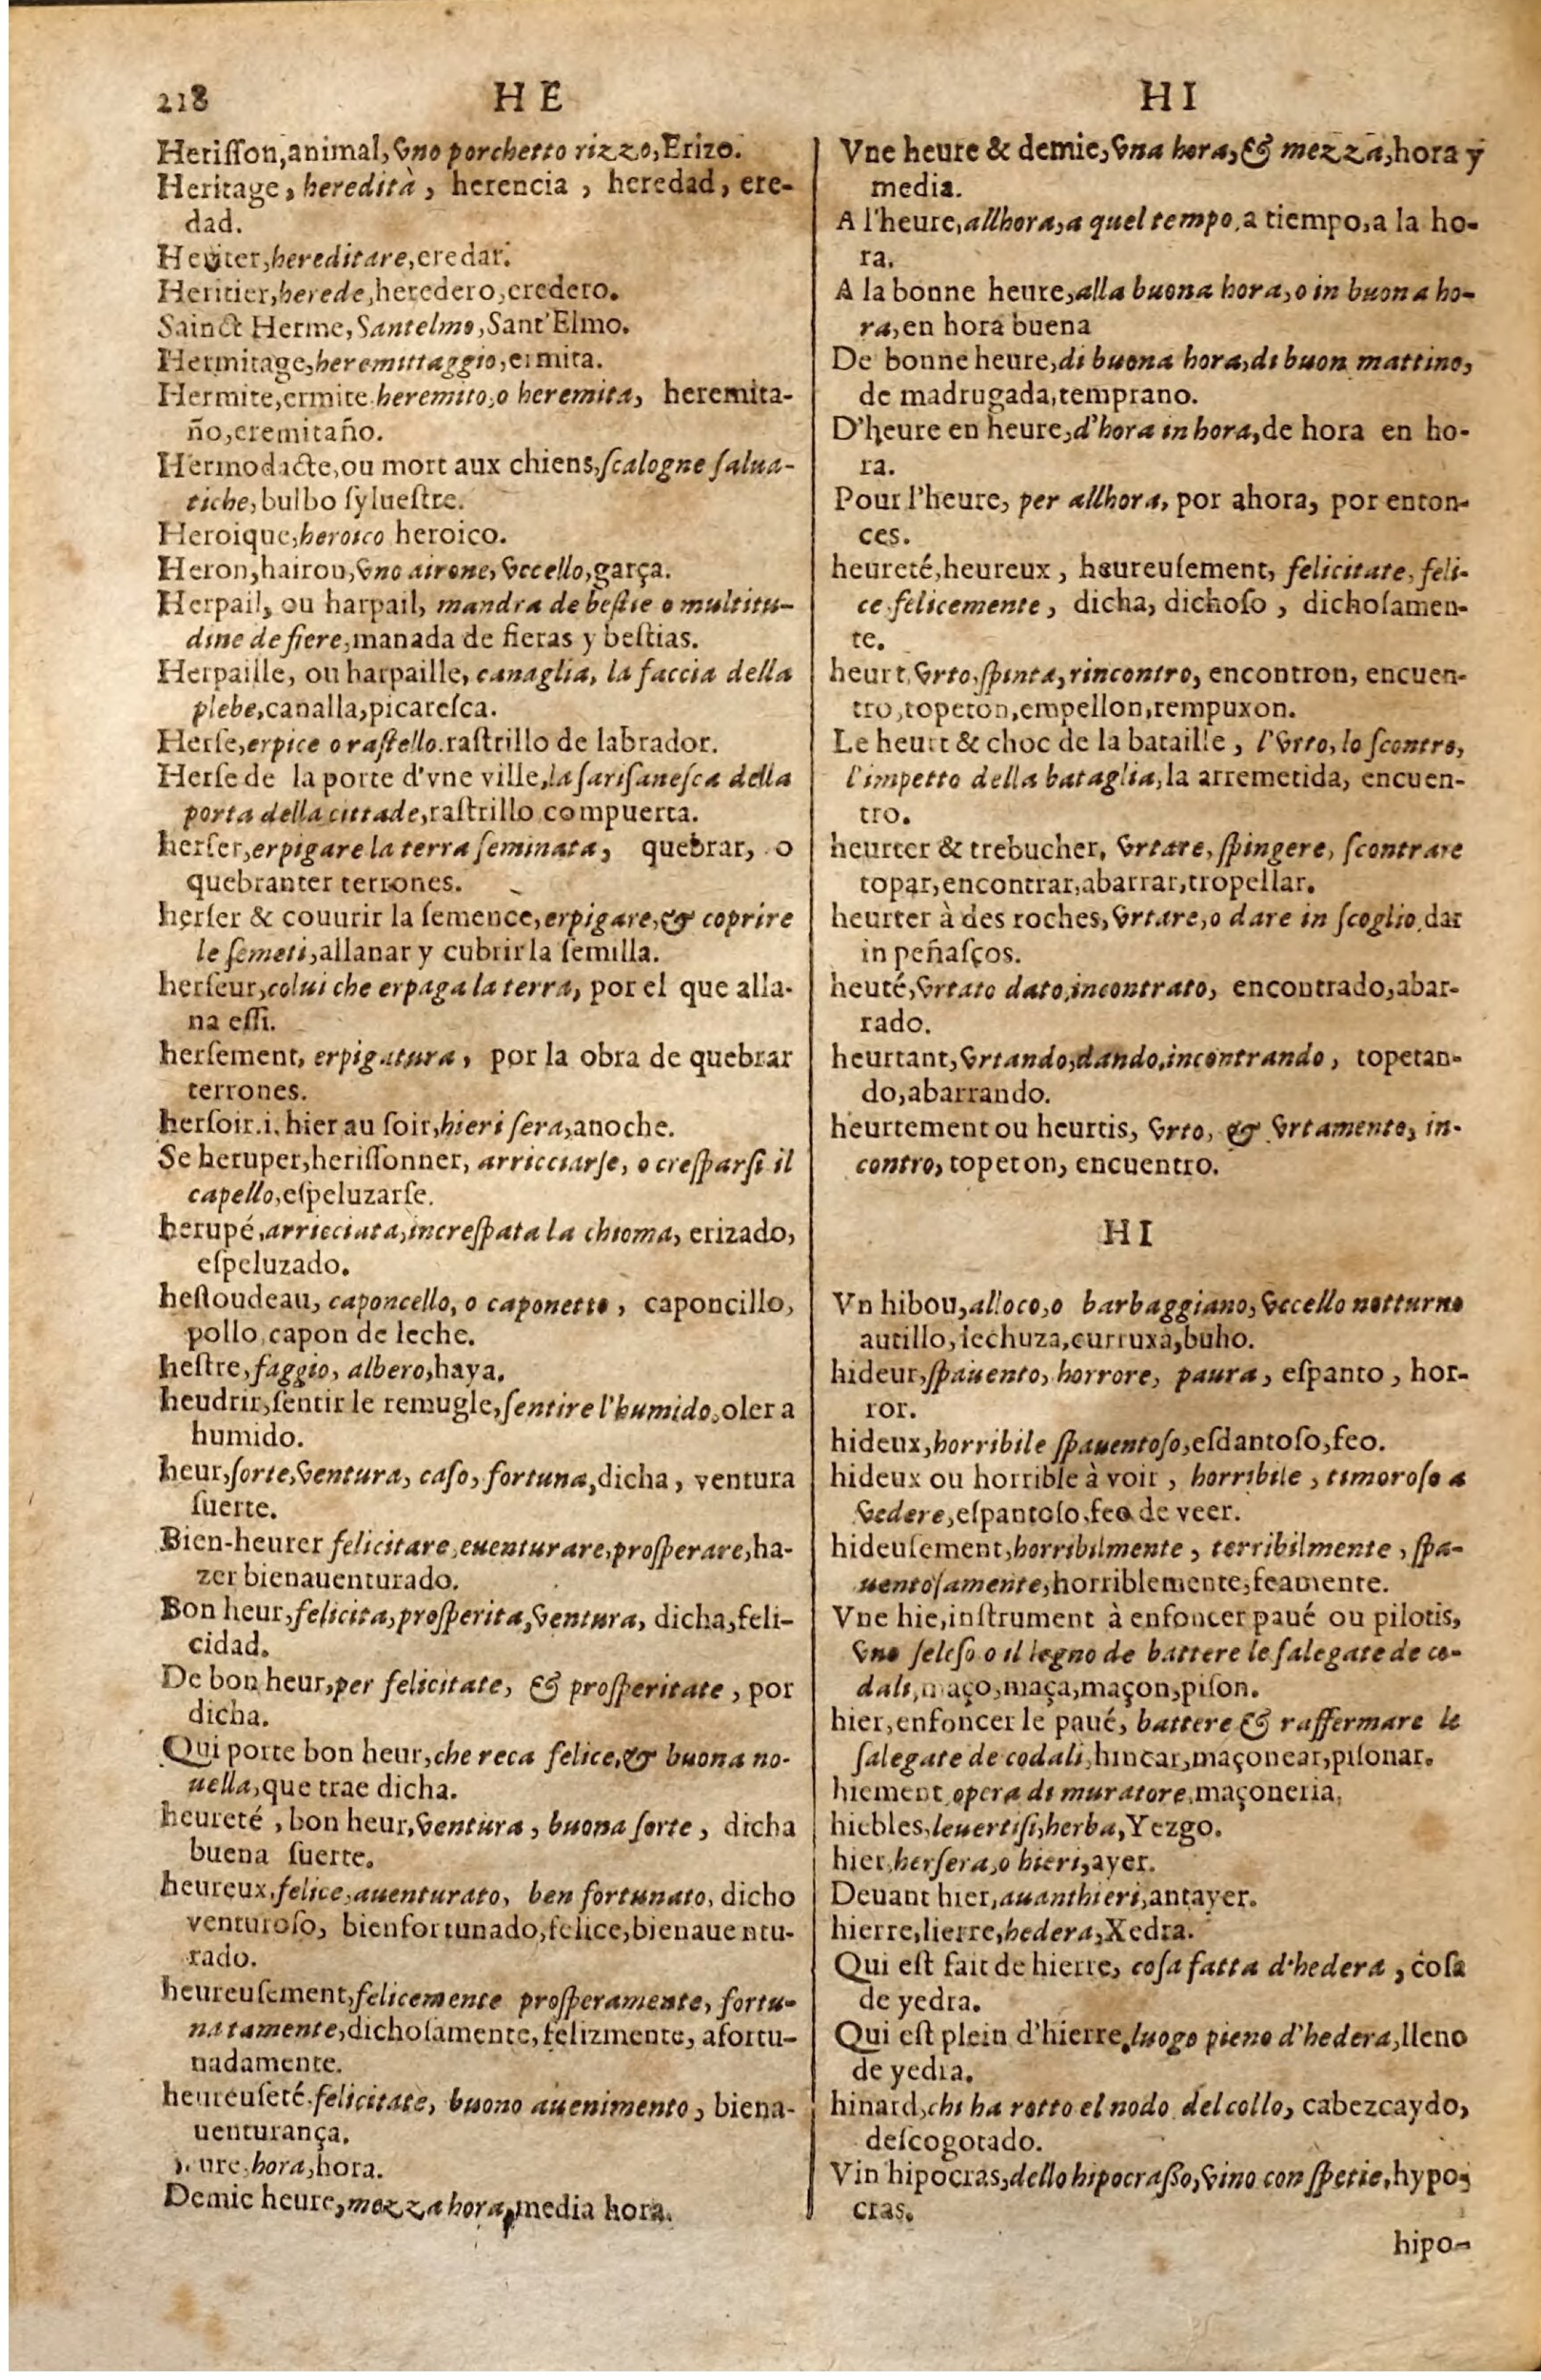 218 HE
Heriſſon, animal, vno porchetto rizzo, Erizo.
Heritage, heredità, herencia, heredad, ere-
dad.
Heriter, hereditare, eredar.
Heritier, herede, heredero, eredero.
Sainct Herme, Santelmo, Sant'Elmo.
Hermitage, heremittaggio, ermita.
Hermite, ermite heremito, o heremita, heremita-
ño, eremitaño.
Hermodacte, ou mort aux chiens, ſcalogne ſalua-
tiche, bulbo ſylueſtre.
Heroique, heroico heroico.
Heron, hairon, vno airone, vccello, garça.
Herpail, ou harpail, mandra de beſtie o multitu-
dine de fiere, manada de fieras y beſtias.
Herpaille, ou harpaille, canaglia, la faccia della
plebe, canalla, picareſca.
Herſe, erpice o raſtello. raſtrillo de labrador.
Herſe de la porte d'vne ville, la ſariſaneſca della
porta della cittade, raſtrillo compuerta.
herſer, erpigare la terra ſeminata, quebrar, o
quebranter terrones.
herſer & couurir la ſemence, erpigare, & coprire
le ſemeti, allanar y cubrir la ſemilla.
herſeur, colui che erpaga la terra, por el que alla-
na eſſi.
herſement, erpigatura, por la obra de quebrar
terrones.
herſoir. i. hier au ſoir, hieri ſera, anoche.
Se heruper, heriſſonner, arricciarſe, o creſparſi il
capello, eſpeluzarſe.
herupé, arricciata, increſpata la chioma, erizado,
eſpeluzado.
heſtoudeau, caponcello, o caponetto, caponcillo,
pollo, capon de leche.
heſtre, faggio, albero, haya.
heudrir, ſentir le remugle, ſentire l'humido, oler a
humido.
heur, ſorte, ventura, caſo, fortuna, dicha, ventura
ſuerte.
Bien-heurer felicitare, euenturare, proſperare, ha-
zer bienauenturado.
Bon heur, felicita, proſperita, ventura, dicha, feli-
cidad.
De bon heur, per felicitate, & proſperitate, por
dicha.
Qui porte bon heur, che reca felice, & buona no-
uella, que trae dicha.
heureté, bon heur, ventura, buona ſorte, dicha
buena ſuerte.
heureux, felice, auenturato, ben fortunato, dicho
venturoſo, bienfortunado, felice, bienauentu-
rado.
heureuſement, felicemente proſperamente, fortu-
natamente, dichoſamente, felizmente, afortu-
nadamente.
heureuſeté. felicitate, buono auenimento, biena-
uenturança.
ure, hora, hora.
Demie heure, mezza hora, media hora.
HI
Vne heure & demie, vna hora, & mezza, hora y
media.
A l'heure, allhora, a quel tempo, a tiempo, a la ho-
ra.
A la bonne heure, alla buona hora, o in buona ho-
ra, en hora buena
De bonne heure, di buona hora, di buon mattino,
de madrugada, temprano.
D'heure en heure, d'hora in hora, de hora en ho-
ra.
Pour l'heure, per allhora, por ahora, por enton-
ces.
heureté, heureux, heureuſement, felicitate, feli-
ce felicemente, dicha, dichoſo, dichoſamen-
te.
heurt, vrto, ſpinta, rincontro, encontron, encuen-
tro, topeton, empellon, rempuxon.
Le heurt & choc de la bataille, l'vrto, lo ſcontro,
l'impetto della bataglia, la arremetida, encuen-
tro.
heurter & trebucher, vrtare, ſpingere, ſcontrare
topar, encontrar, abarrar, tropellar.
heurter à des roches, vrtare, o dare in ſcoglio, dar
in peñaſços.
heuté, vrtato dato, incontrato, encontrado, abar-
rado.
heurtant, vrtando, dando, incontrando, topetan-
do, abarrando.
heurtement ou heurtis, vrto, & vrtamento, in-
contro, topeton, encuentro.
HI
Vn hibou, alloco, o barbaggiano, vccello notturno
autillo, lechuza, curruxa, buho.
hideur, ſpauento, horrore, paura, eſpanto, hor-
ror.
hideux, horribile ſpauentoſo, eſdantoſo, feo.
hideux ou horrible à voir, horribile, timoroſo a
vedere, eſpantoſo, feo de veer.
hideuſement, horribilmente, terribilmente, ſpa-
uentoſamente, horriblemente, feamente.
Vne hie, inſtrument à enfoncer paué ou pilotis,
vno ſeleſo o il legno de battere le ſalegate de co-
dali, maço, maça, maçon, piſon.
hier, enfoncer le paué, battere & raffermare le
ſalegate de codali, hincar, maçonear, piſonar.
hiement opera di muratore, maçoneria,
hiebles, leuertiſi, herba, Yezgo.
hier, herſera, o hieri, ayer.
Deuant hier, auanthieri, antayer.
hierre, lierre, hedera, Xedra.
Qui eſt fait de hierre, coſa fatta d'hedera, coſa
de yedra.
Qui eſt plein d'hierre, luogo pieno d'hedera, lleno
de yedra.
hinard, chi ha rotto el nodo del collo, cabezcaydo,
deſcogotado.
Vin hipocras, dello hipocraſſo, vino con ſpetie, hypo-
cras.
hipo-